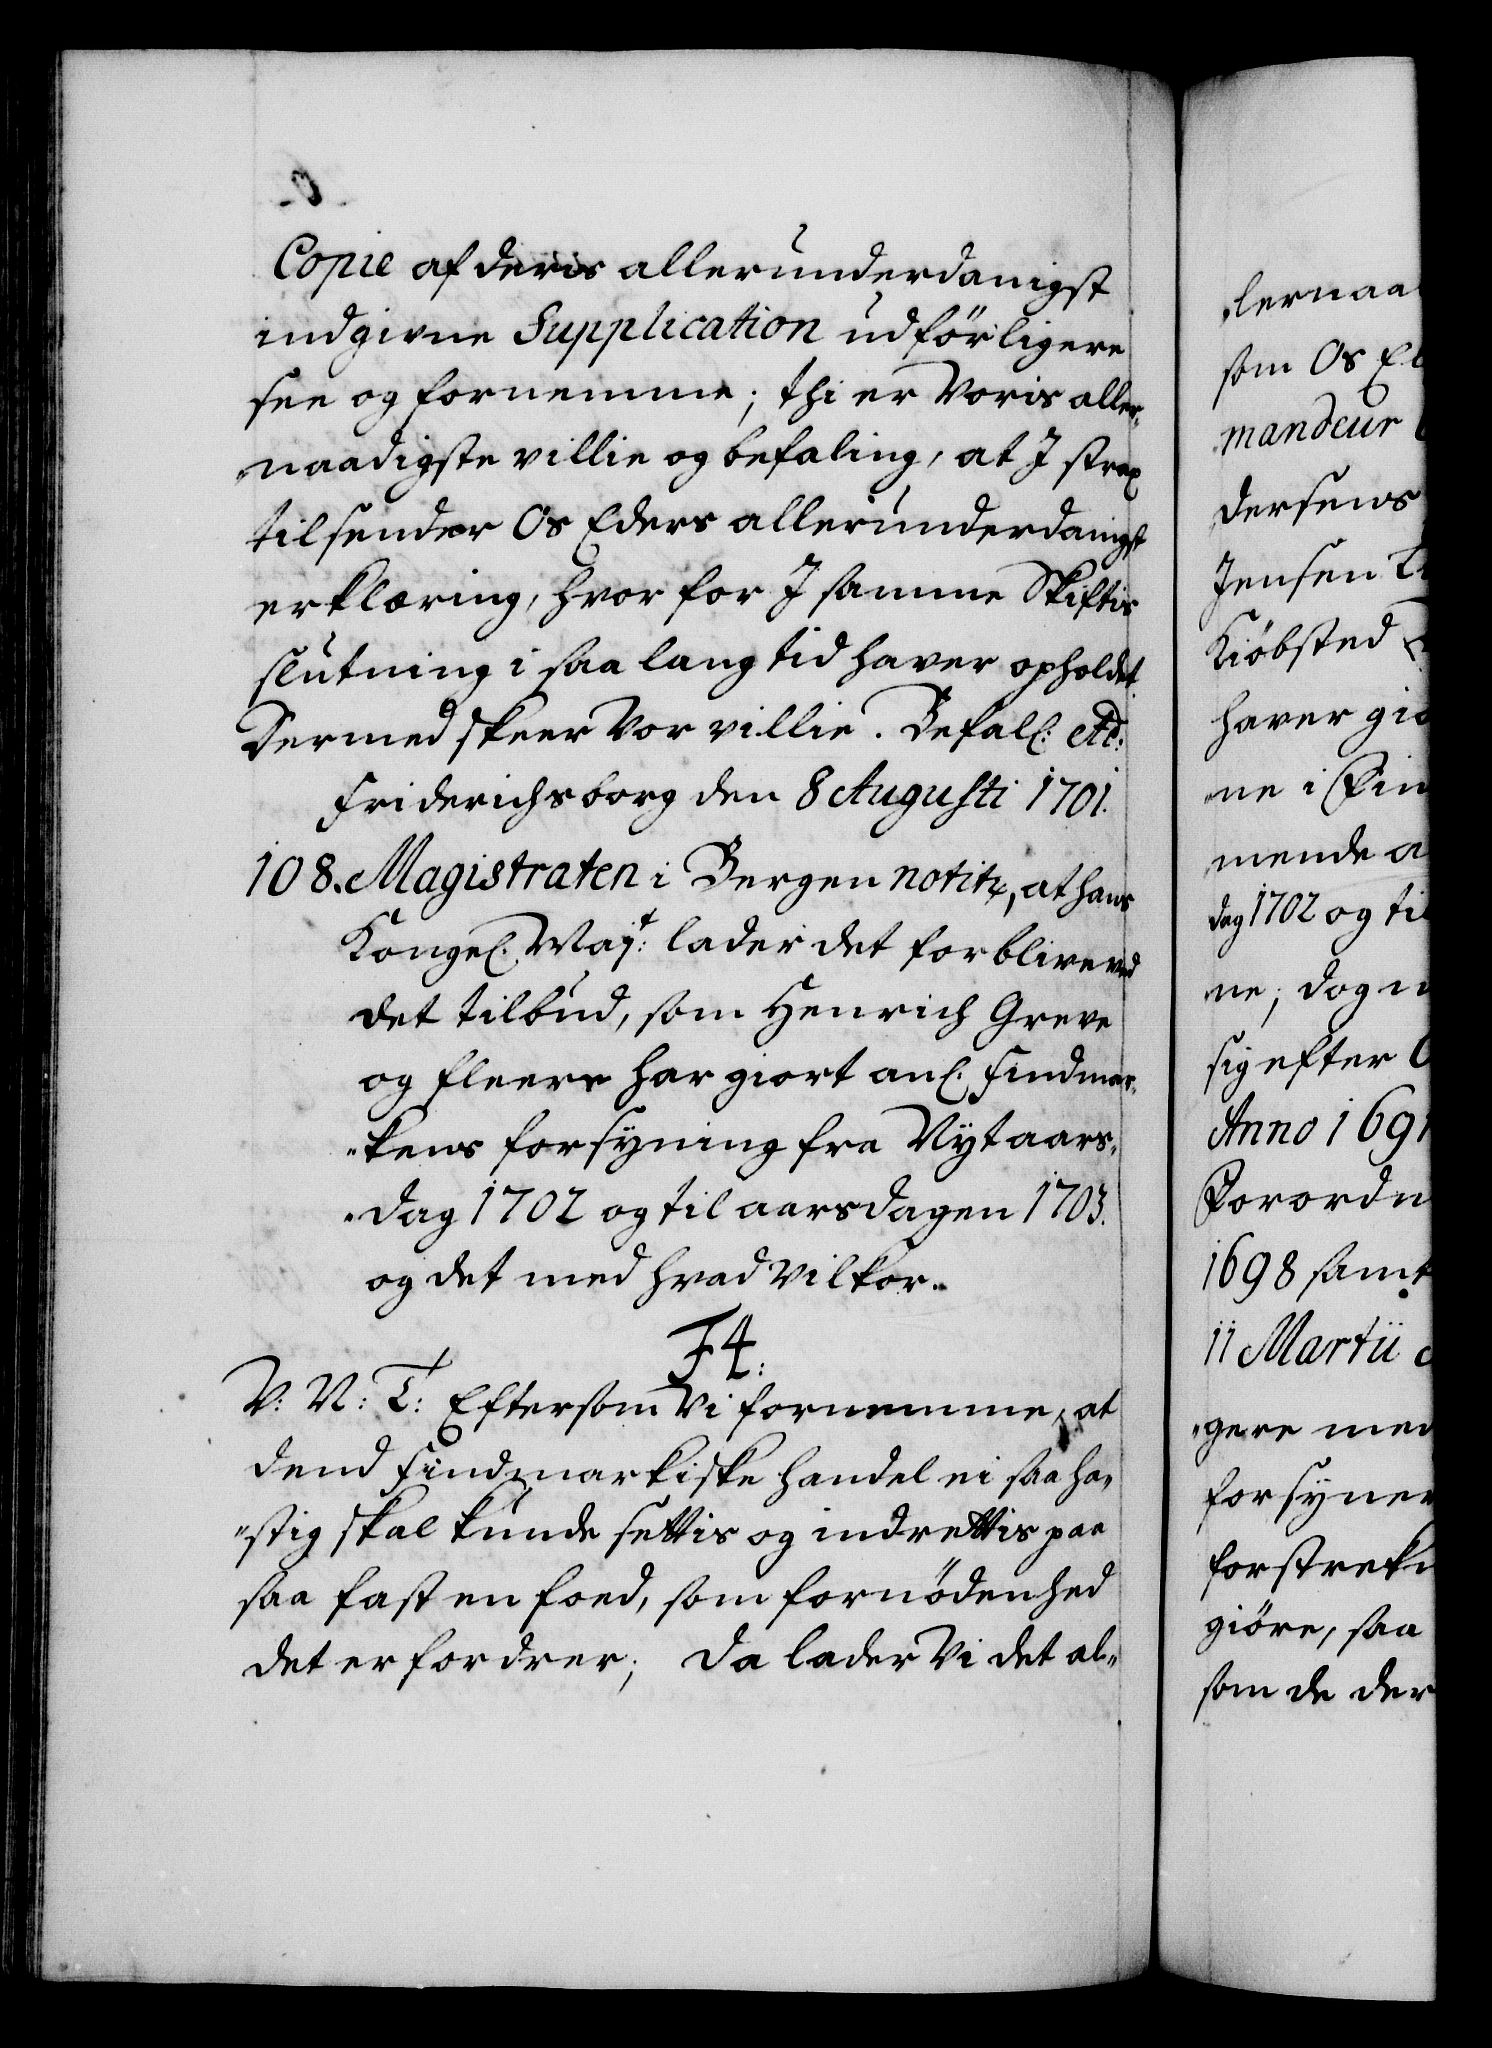 Copie af deris allerunderdanigst
indgivne Supplication udförligere
see og fornemme; thi er Voris aller„
naadigste villie og befaling, at J strax
tilsender Os Eders allerunderdanigst
erklæring, hvor for J samme Skiftis
slutning i saa lang tid haver opholdet.
Dermed skeer Vor villie. Befal: etc:
Friderichsborg den 8 Augusti 1701.
108. Magistraten i Bergen notite, at hans
Kongel: Majt: lader det forblive ved
det tilbud, som Henrich Greve
og fleere har giort anl: Findmar„
„kens forsyning fra Nyt aars„
„dag 1702 og til aarsdagen 1703.
og det med hvad Vilkor.
F4.
V: N: T: Eftersom Vi fornemme, at
dend Findmarkiske handel ei saa ha„
„stig skal kunde settis og indrettis paa
saa fast en foed, som fornödenhed
det erfordrer; Da lader Vi det al„
„lernaa
som Os El
mandeur
dersens
Jensen
Kiöbsted
haver gio
„ne i Fin
mende a
dag 1702 og til
ne; dog
sig efter
Anno 1691
Forordn
1698 samt
11 Martii
„gere med
forsyner
forstrek
giöre, saa
som de der